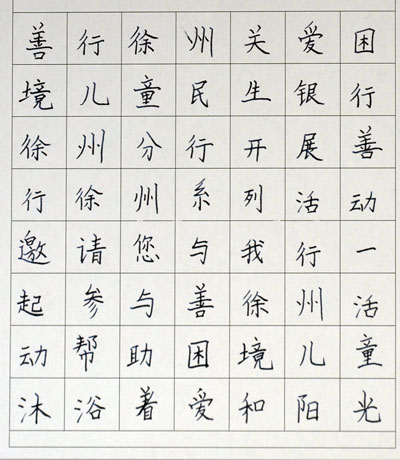 善行徐州关爱困
境儿童民生银行
徐州分行开展善
行徐州系列活动
邀请您与我行一
起参与善徐州活
动帮助困境儿童
沐浴着爱和阳光